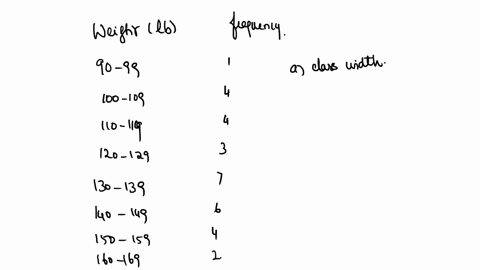 Weight (lb) frequency.
90-99 1 a) class width.
100-109 4
110-119 4
120-129 3
130-139 7
140-149 6
150-159 4
160-169 2